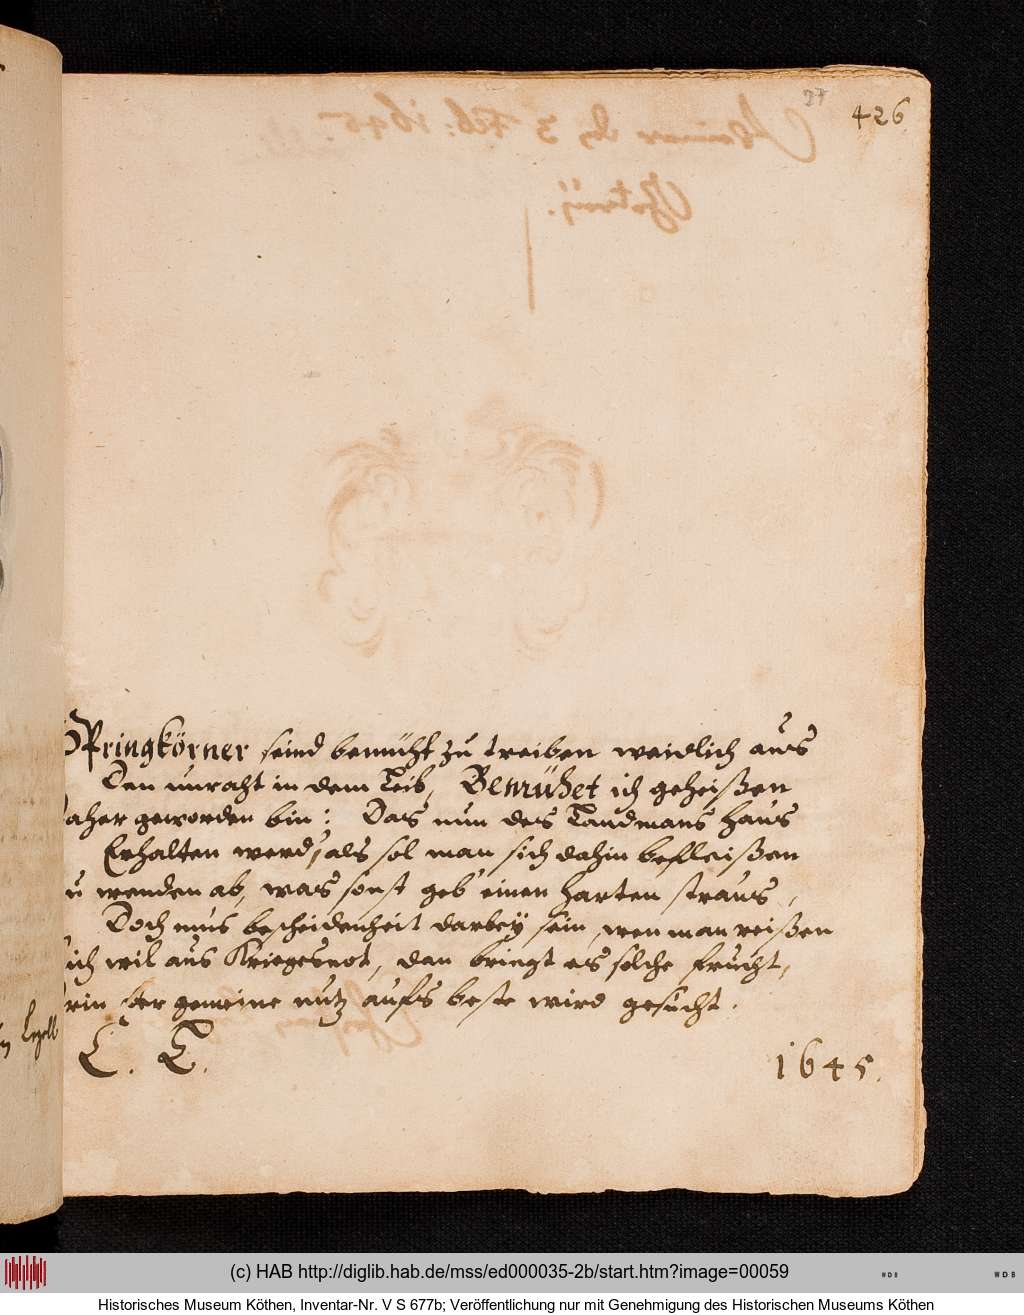 37
426
SPringkörner seind bemüht zu treiben weidlich aus
Den unraht in dem Leib, Bemühet ich geheißen
aher geworden bin: Das nun des Landmans haus
Erhalten werd, als sol man sich dahin befleißen
u wenden ab, was sonst geb' einen harten straus,
Doch mus bescheidenheit darbey sein, wen man reißen
ich wil aus Kriegesnot, dan bringt es solche frucht,
rin der gemeine nutz aufs beste wird gesucht.
C. E.
1645.
(c) HAB http://diglib.hab.de/mss/ed000035-2b/start.htm?image=00059
WDB
WDB
Historisches Museum Köthen, Inventar-Nr. V S 677b; Veröffentlichung nur mit Genehmigung des Historischen Museums Köthen